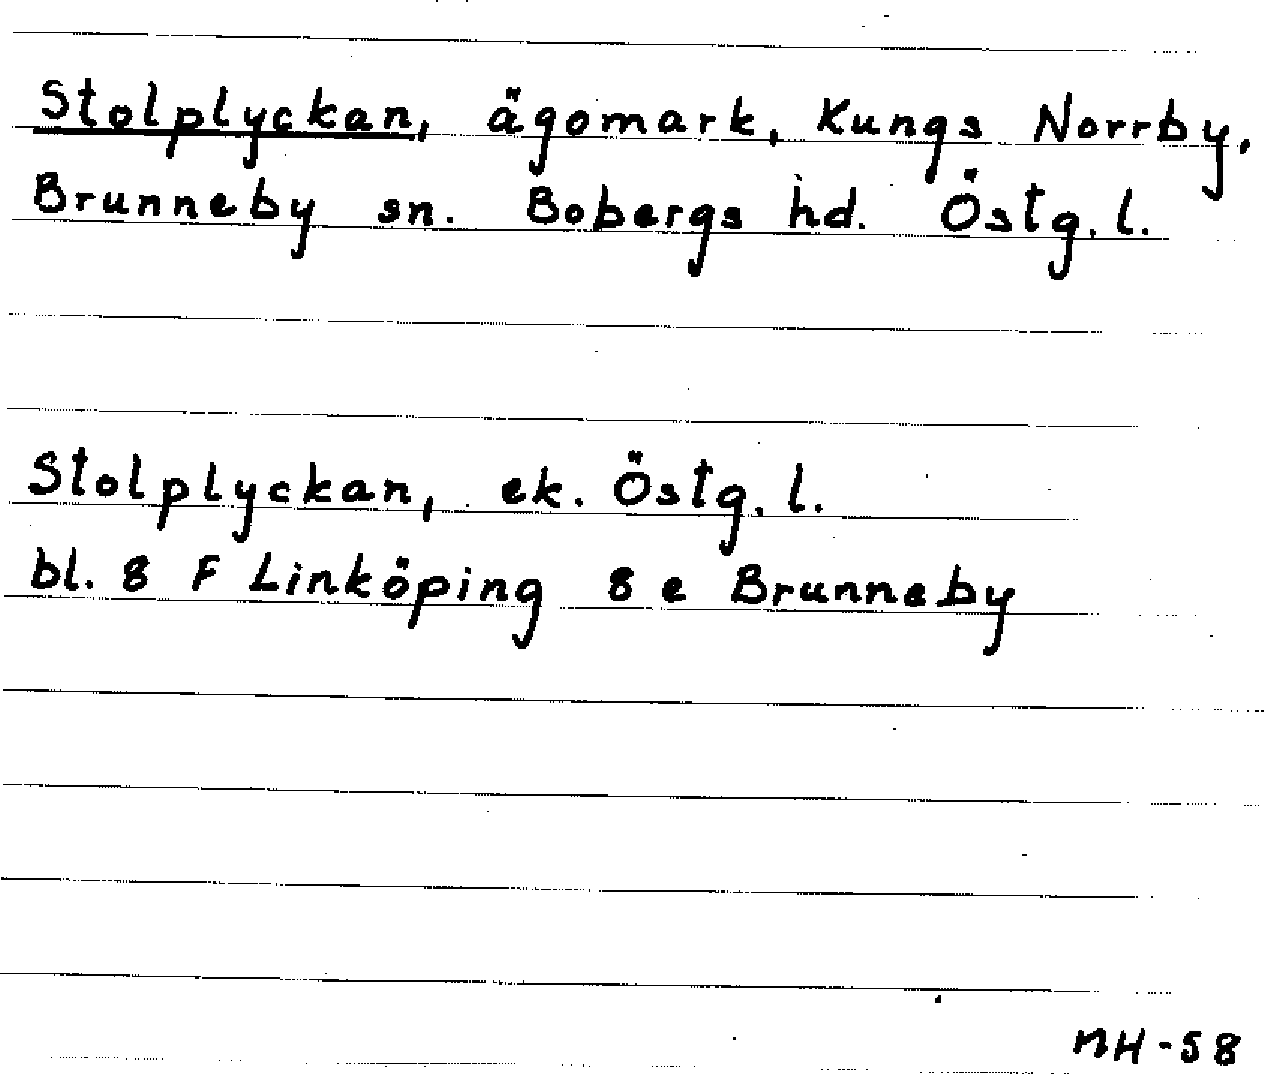 Stolplyckan, ägomark, Kungs Norrby,
Brunneby sn. Bobergs hd. Östg. l.
Stolplyckan, ek. Östg. l.
bl. 8 F Linköping 8 e Brunneby
MH-58